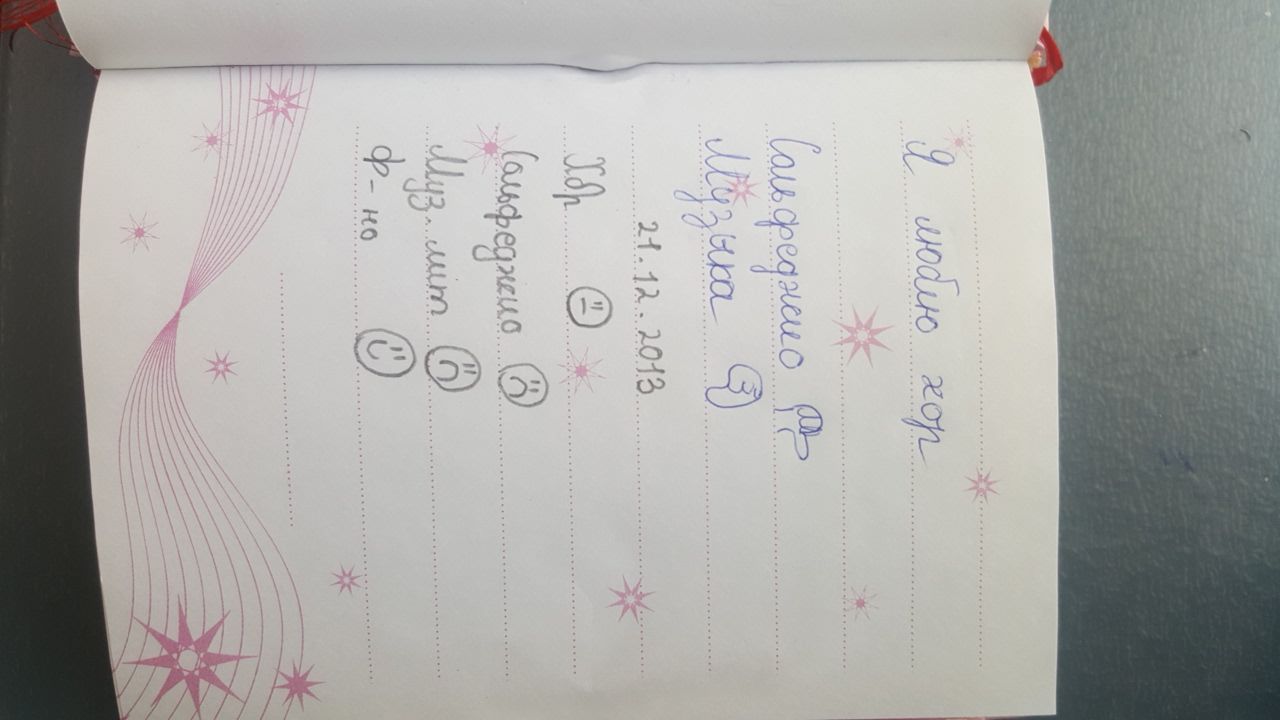 Я люблю хор
Сольфеджио
Музыка
21.12.2013
Хор
Сольфеджио
Муз. літ
ф-но